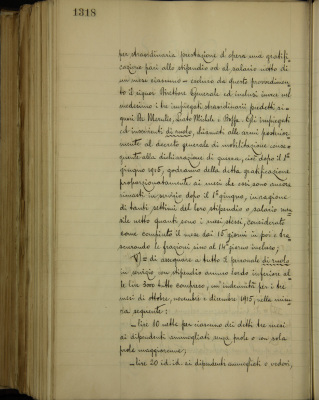 1318
per straordinaria prestazione d'opera una gratifi-
cazione pari allo stipendio od al salario netto di
un mese ciascuno – esclusi da questo provvedimen-
to il signor Direttore Generale ed inclusi invece nel
medesimo i tre impiegati straordinari predetti si-
gnori De Merulis, Liuto Michele e Boffa. Gli impiegati
ed inservienti di ruolo, chiamati alle armi posterior-
mente al decreto generale di mobilitazione conse-
guente alla dichiarazione di guerra, cioè dopo il 1º
giugno 1915, godranno della detta gratificazione
proporzionatamente ai mesi che essi sono ancora
rimasti in servizio dopo il 1º giugno, in ragione
di tanti settimi del loro stipendio o salario men-
sile netto quanti sono i mesi stessi, considerato
come compiuto il mese dai 15 giorni in poi e tra-
scurando le frazioni sino al 14º giorno incluso;
V)= di assegnare a tutto il personale di ruolo
in servizio con stipendio annuo lordo inferiore al-
le lire 3000 tutto compreso, un'indennità per i tre
mesi di ottobre, novembre e dicembre 1915, nella misu-
ra seguente:
– lire 10 nette per ciascuno dei detti tre mesi
ai dipendenti ammogliati senza prole o con sola
prole maggiorenne;
– lire 20 id. id. ai dipendenti ammogliati o vedovi,